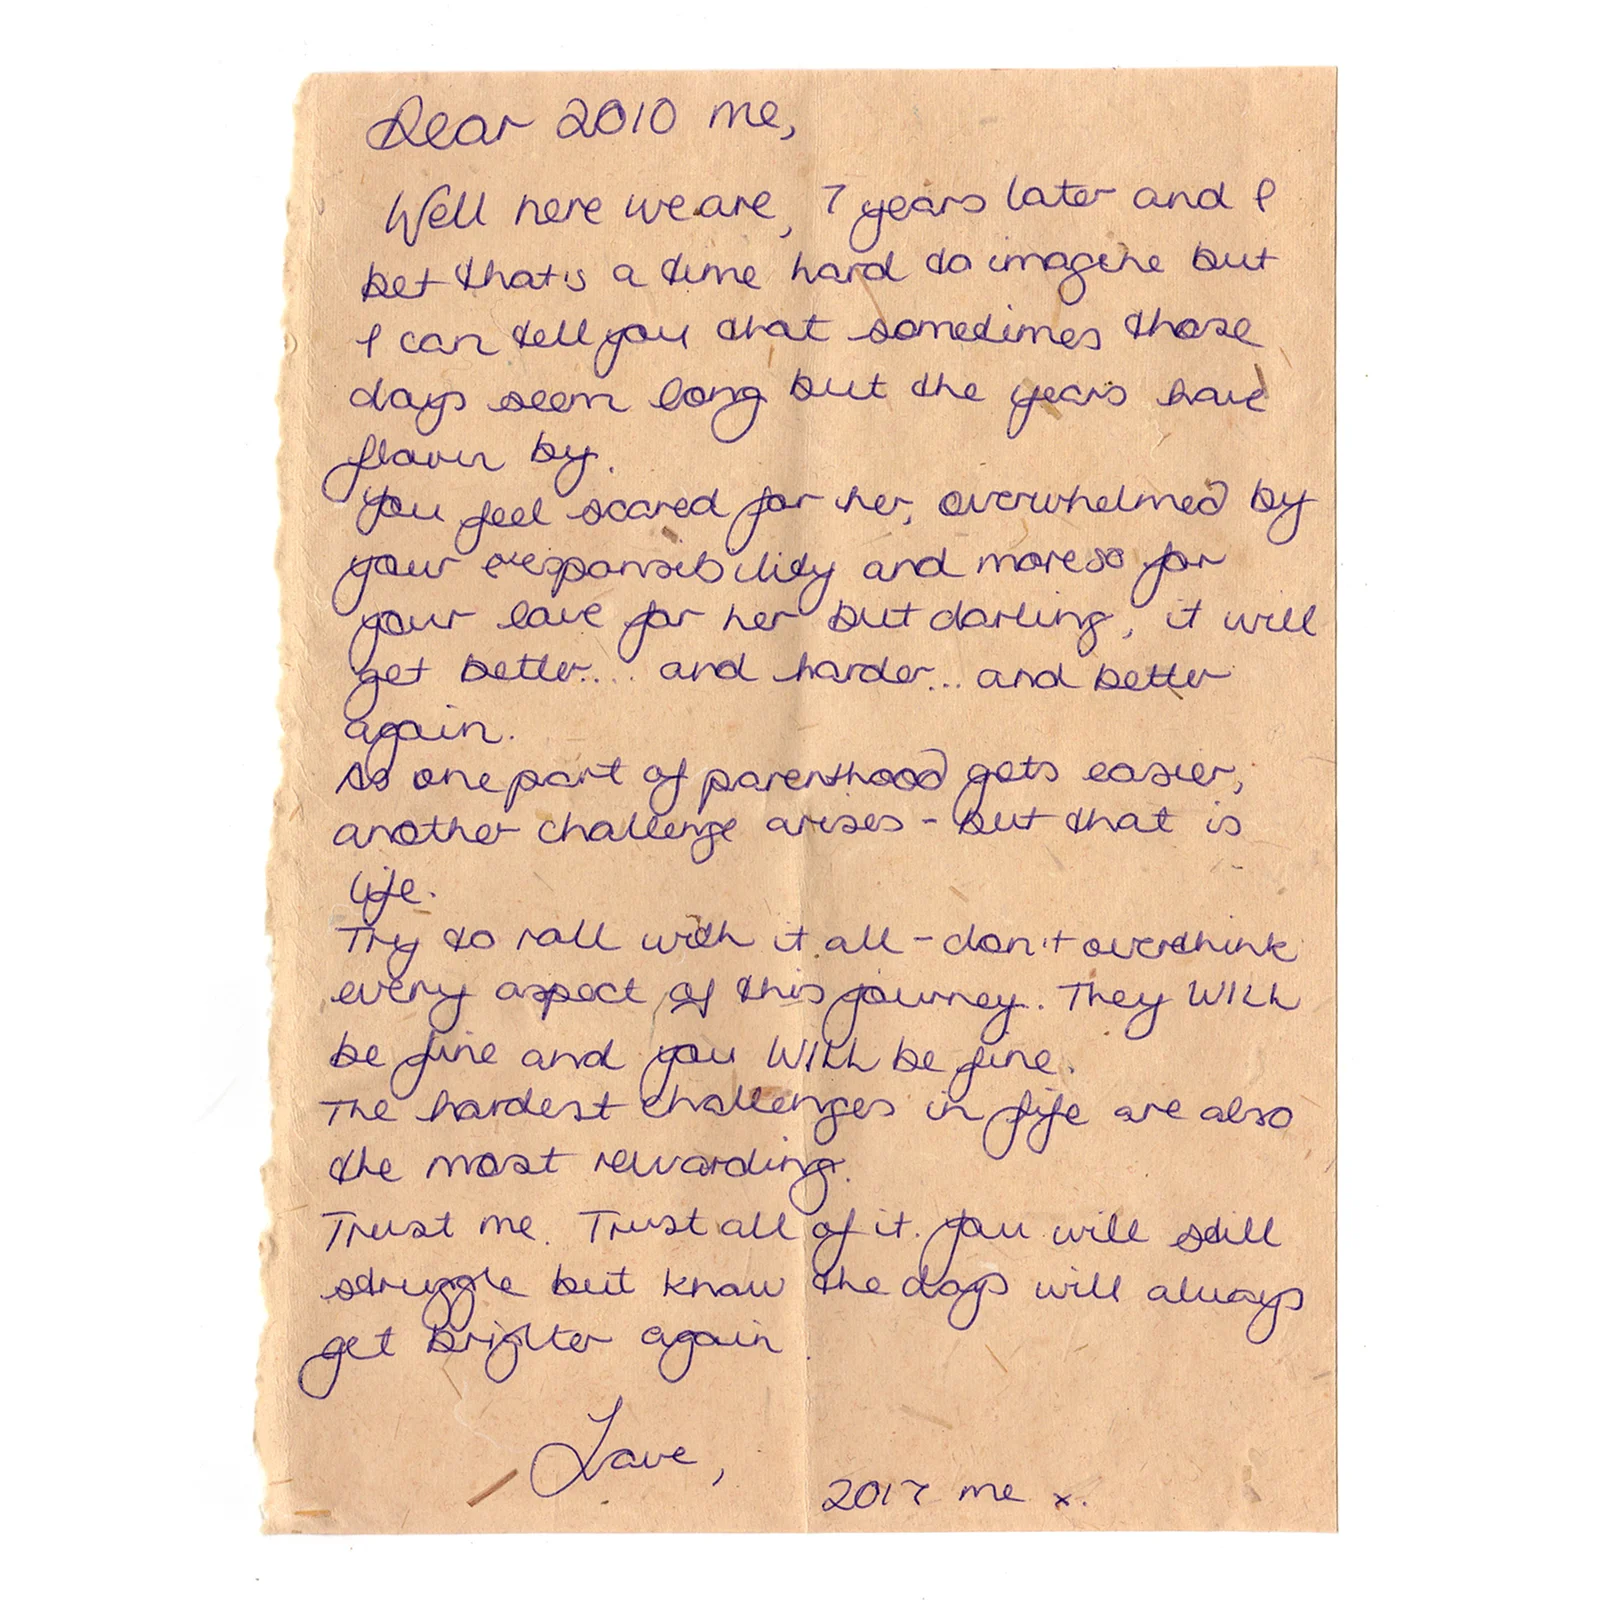 Dear 2010 me,
Well here we are, 7 years later and I
bet that's a time hard to imagine but
I can tell you that sometimes those
days seem long but the years have
flown by.
You feel scared for her, overwhelmed by
your responsibility and more so for
your love for her but darling, it will
get better.... and harder... and better
again.
As one part of parenthood gets easier,
another challenge arises - but that is
life.
Try to roll with it all - don't overthink
every aspect of this journey. They WILL
be fine and you WILL be fine.
The hardest challenges in life are also
the most rewarding.
Trust me. Trust all of it. You will still
struggle but know the days will always
get brighter again.
Love,
2017 me x.